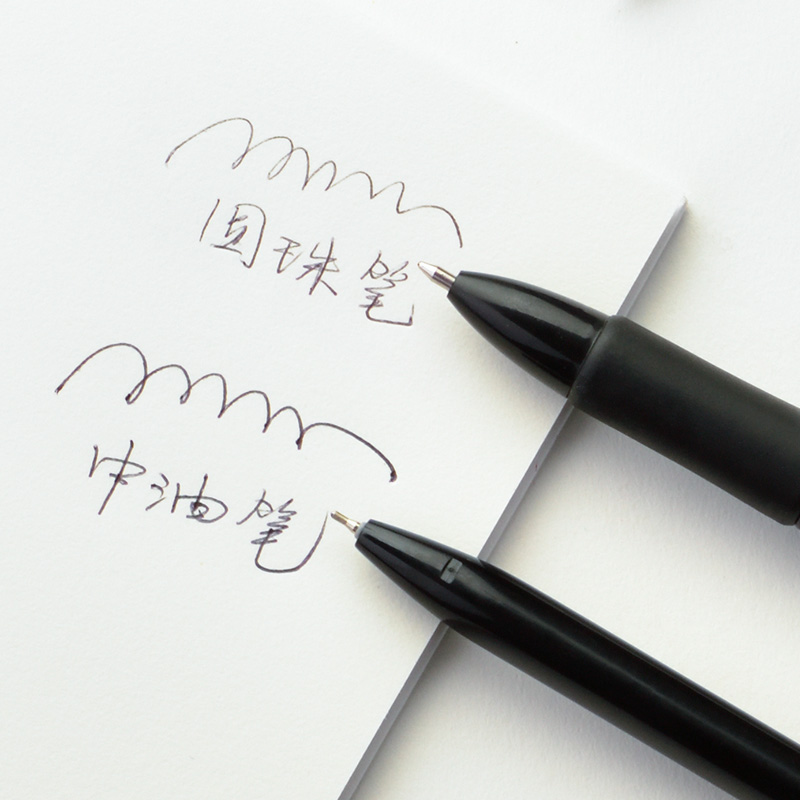 圆珠笔
中油笔